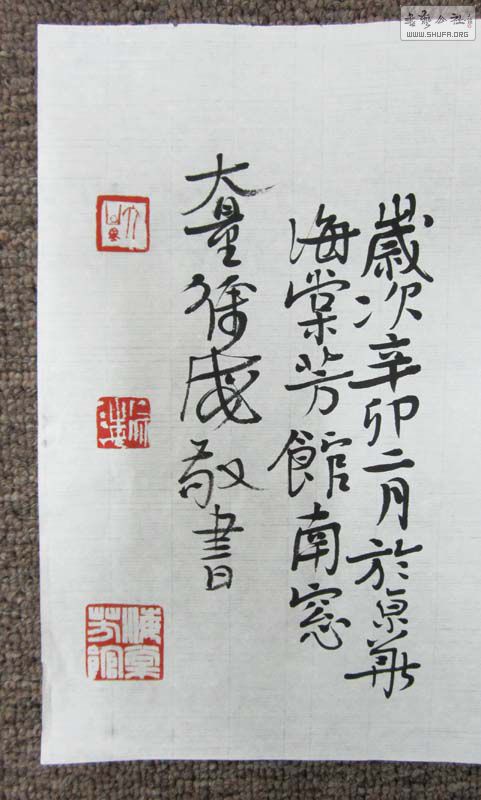 歲次辛卯二月於京華
海棠芳館南窓
大量敬書
海棠芳館
書藝公社
WWW.SHUFA.ORG